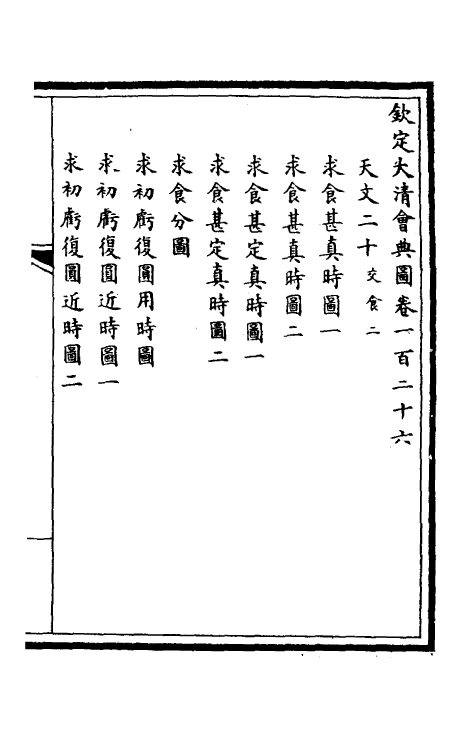 欽定大清會典圖卷一百二十六
天文二十交食二
求食甚真時圖一
求食甚真時圖二
求食甚定真時圖一
求食甚定真時圖二
求食分圖
求初虧復圓用時圖
求初虧復圓近時圖一
求初虧復圓近時圖二